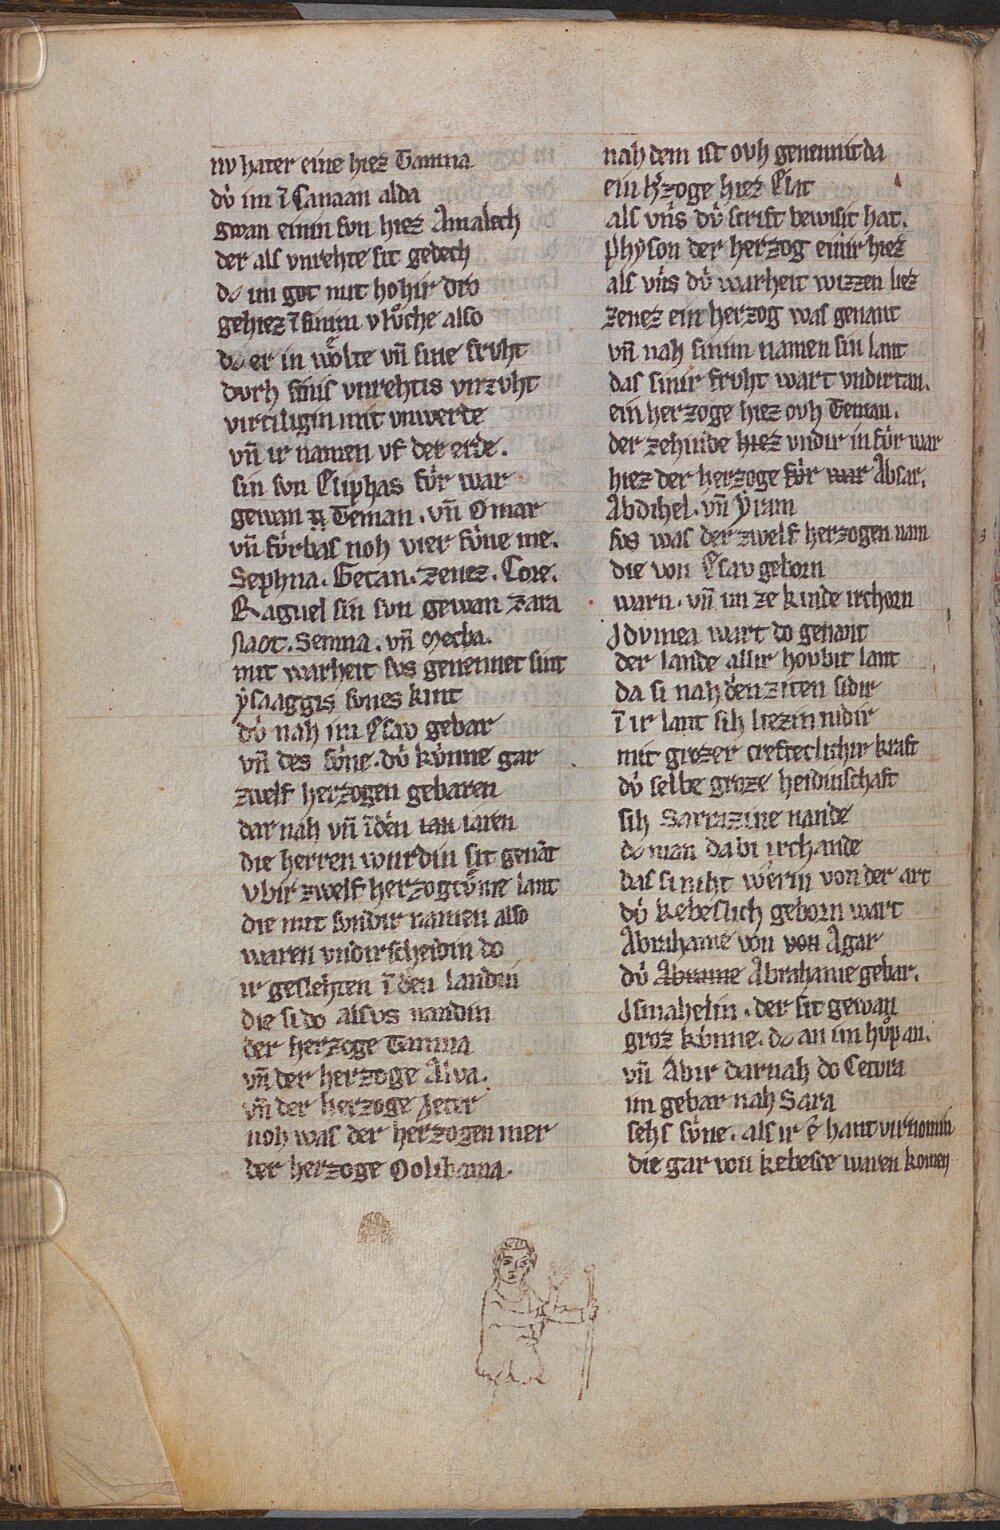 nv hater eine hiez Tamna
dv̓ im ī Canaan alda
gwan einin svn hiez Amalech
der als vnrehte sit gedech
do im got mit hohir dro
gehiez ī sinim vlůche also
do er in wolte vn̄ sine frvht
dvrh sinis vnrehtis virzvht
virtiligin mit vnwerde
vn̄ ir namen vf der erde.
sin svn Eliphas fv̓r war
gewan Teman. vn̄ Omar
vn̄ fv̓rbas noh vier sv̓ne me.
Sephna. Getan. Zenez. Core.
Raguel sin svn gewan Zara
Naot. Semna. vn̄ Mecha.
mit warheit svs genennet sint
ẏsaaggis svnes kint
dv̓ nah im Esav gebar
vn̄ des sv̓ne. dv̓ kv̓nne gar
zwelf herzogen gebaren
dar nah vn̄ ī den iaren
die herren wurdin sit genāt
vbir zwelf herzogtv̓me lant
die mit svndir namen also
waren vndirscheidin do
ir geslehten ī den landin
die si do alsvs nandin
der herzoge Tamna
vn̄ der herzoge Alva.
vn̄ der herzoge Zeter
noh was der herzogen mer
der herzoge Oolibama.
nah dem ist ovh genennit da
ein h̓zoge hiez Elat
als vn̓s dv̓ scrift bewisit hat.
Physon der herzog einir hiez
als vn̓s dv̓ warheit wizzen liez
Zenez ein herzog was genant
vn̄ nah sinim namen sin lant
das sinir frvht wart vndirtan.
ein herzoge hiez ovh Teman.
der zehinde hiez vndir in fv̓r war
hiez der herzoge fv̓r war Absar.
Abdihel. vn̄ Ẏram
svs was der zwelf herzogen nam
die von Esav geborn
warn. vn̄ im ze kinde irchorn
Idvmea wart do genant
der lande allir hovbit lant
da si nah den ziten sidir
ī ir lant sih liezin nidir
mit grozer crefteclichir kraft
dv̓ selbe groze heidinschaft
sih Sarrazine nande
do man da bi irchande
das si niht werin von der art
dv̓ kebeslich geborn wart
Abrahame von von Agar
dv̓ Abrame Abrahame gebar.
Ismahelin. der sit gewan
groz kv̓nne. do an im hůp an.
vn̄ Abir darnah do Cetvra
im gebar nah Sara
sehs sv̓ne. als ir ê hant virnomin
die gar von kebesce waren komen